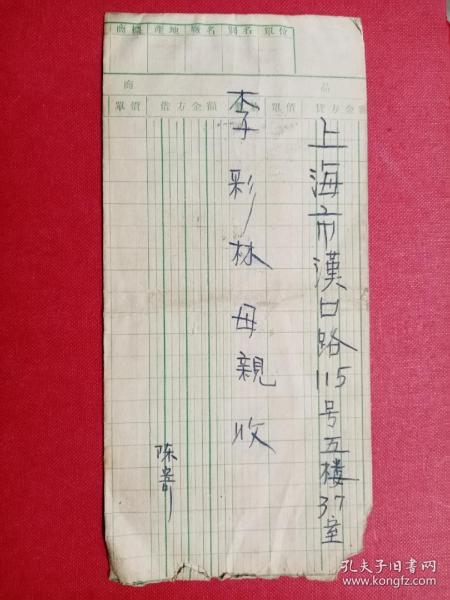 商標 產地 廠名 別名 單位
商 品
單價 借方金額 單價 貸方金額
上海市漢口路115号五楼37室
李彩林母親收
陈寄
孔夫子旧书网
www.kongfz.com